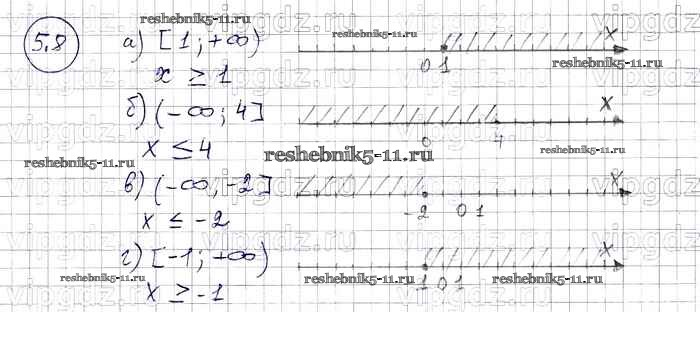 5.8
а) [1; +∞)
x ≥ 1
0 1 x
б) (-∞; 4]
x ≤ 4
0 4 x
в) (-∞; -2]
x ≤ -2
-2 0 1 x
г) [-1; +∞)
x ≥ -1
-1 0 1 x
reshebnik5-11.ru
reshebnik5-11.ru
reshebnik5-11.ru
reshebnik5-11.ru
reshebnik5-11.ru
reshebnik5-11.ru
reshebnik5-11.ru
reshebnik5-11.ru
reshebnik5-11.ru
vipgdz.ru
vipgdz.ru
vipgdz.ru
vipgdz.ru